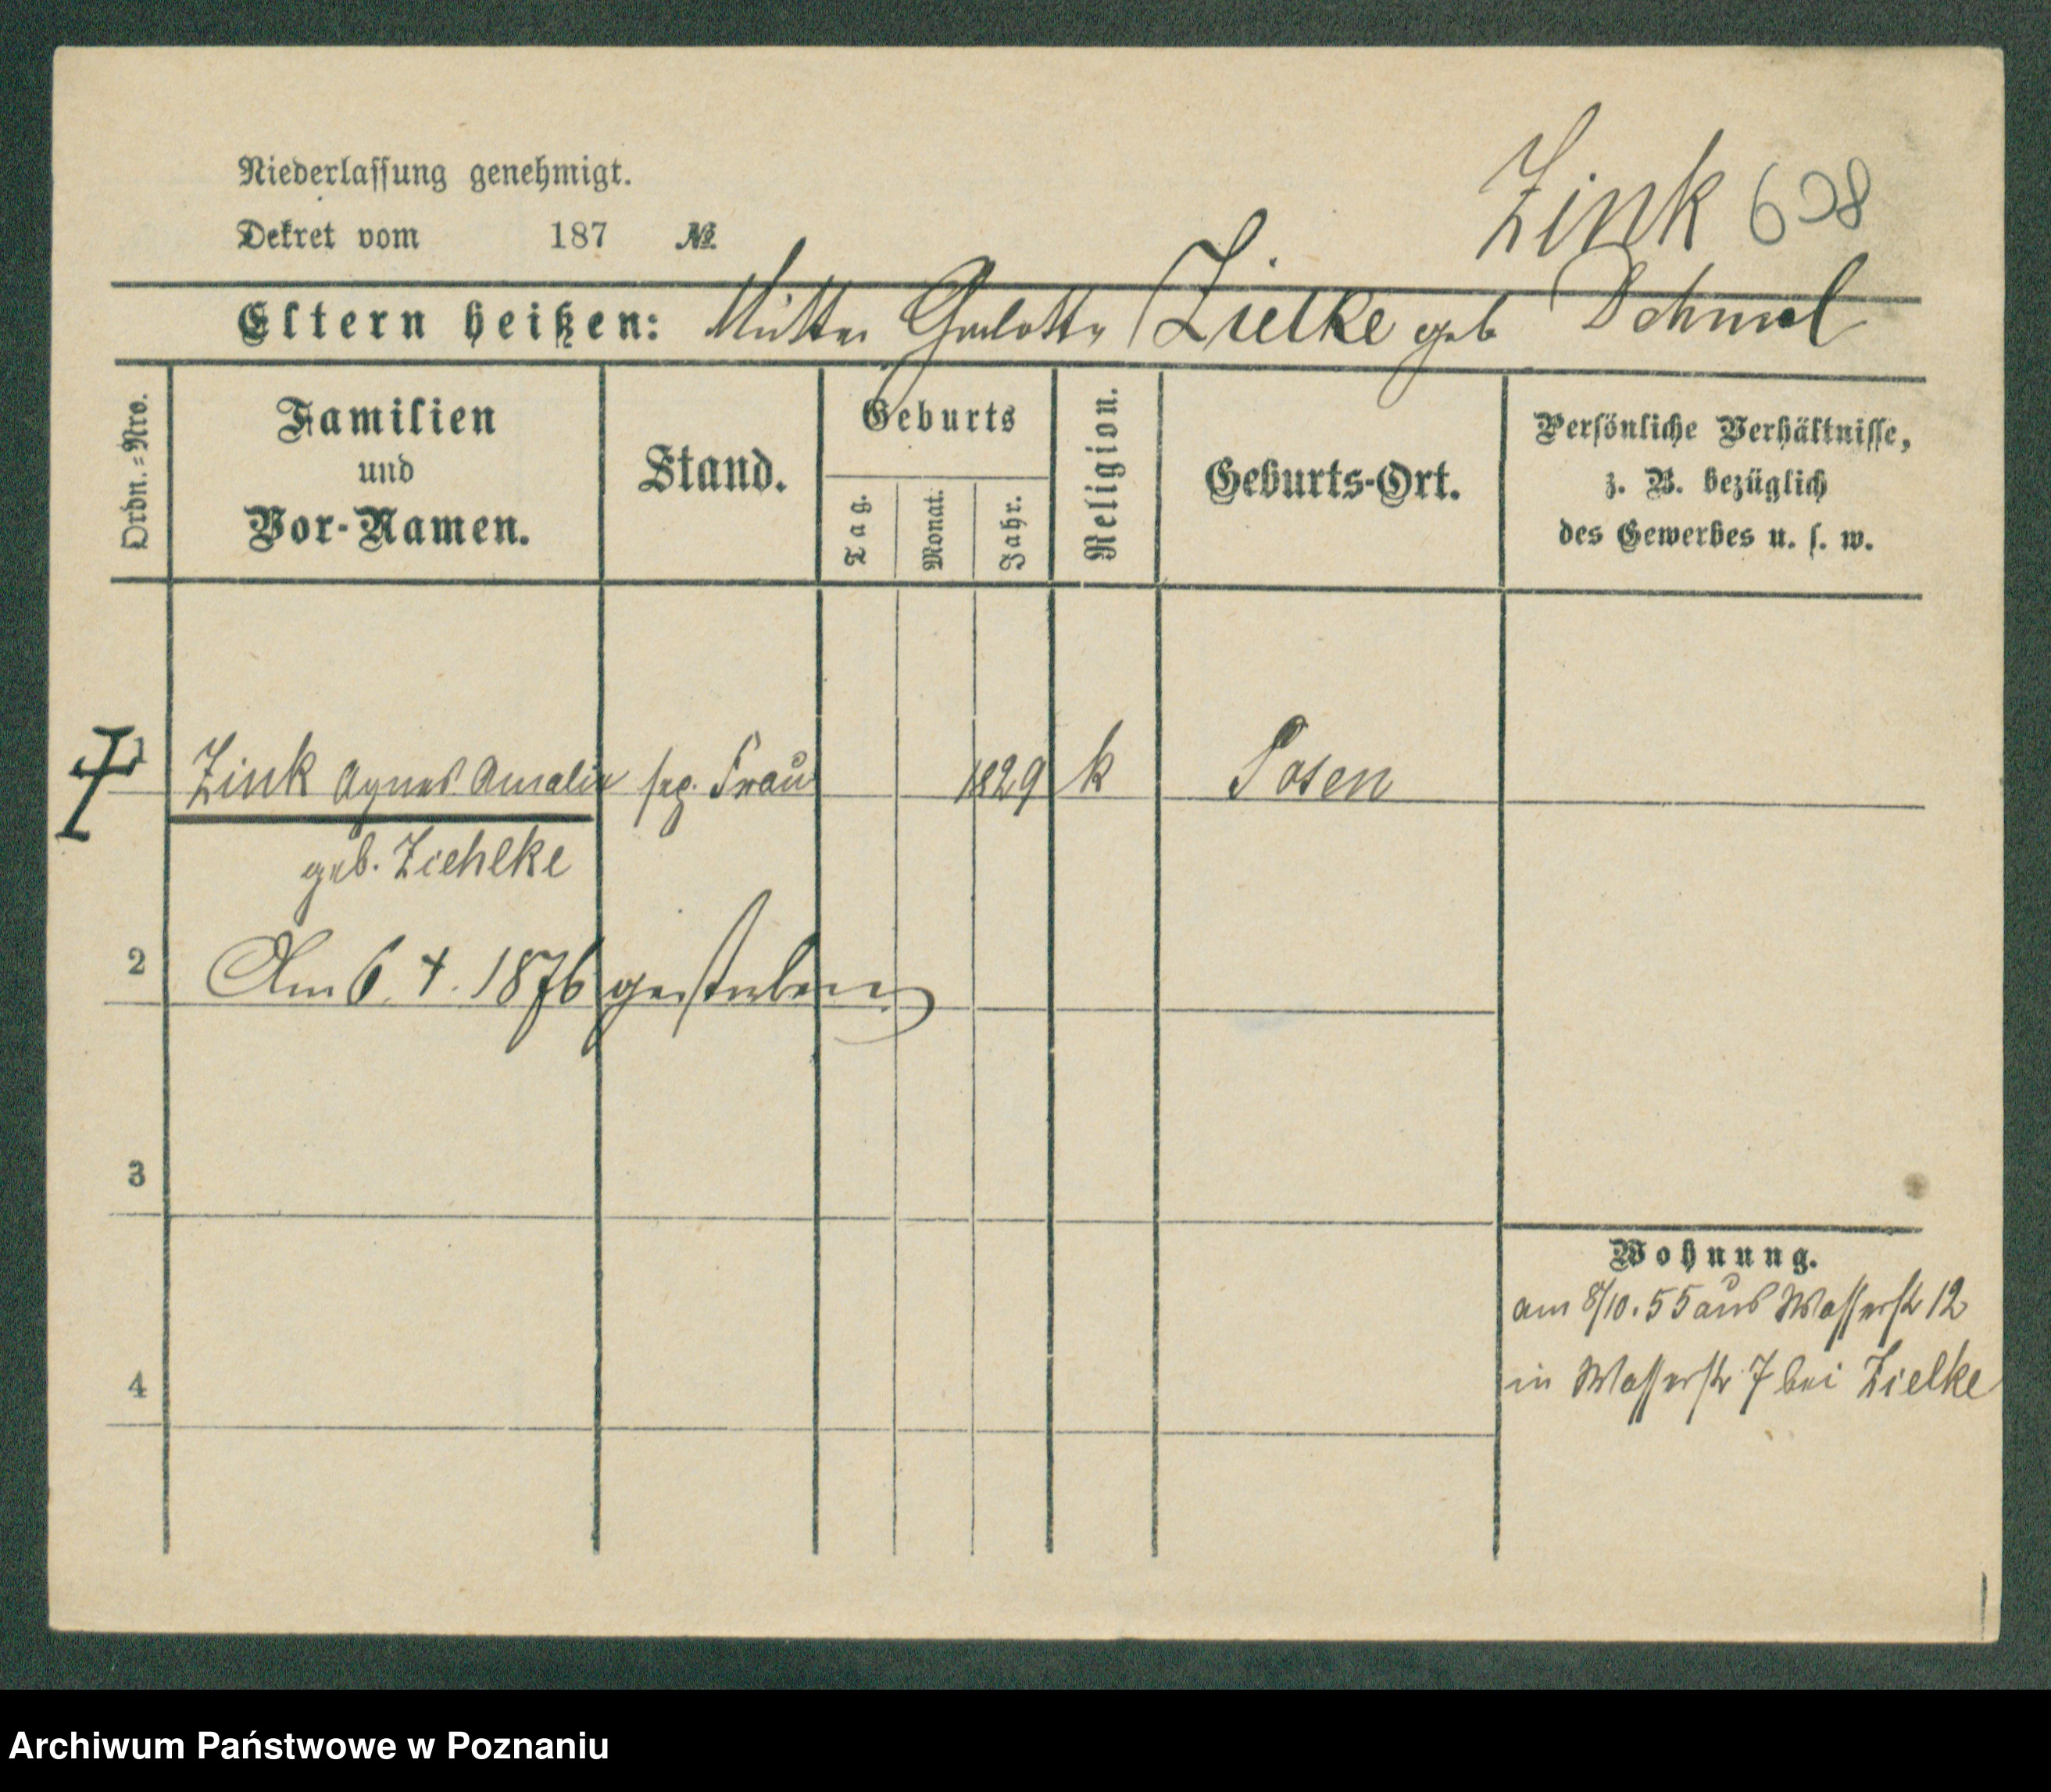 Zink 608
Niederlassung genehmigt.
Dekret vom 187 No.
Eltern heißen: Mutter Zielke geb Schmol
Ordn.=Nro.
Familien
und
Vor-Namen.
Stand.
Geburts
Tag.
Monat.
Jahr.
Religion.
Geburts-Ort.
Persönliche Verhältnisse,
z. B. bezüglich
des Gewerbes u. s. w.
1 Zink Agnes Amalie Frau 1829 k Posen
geb. Ziehlke
2 Am 6. 4. 1876 gestorben
3
Wohnung.
am 8/10. 55 aus Wasserstr 12
4 in Wasserstr 7 bei Zielke
Archiwum Państwowe w Poznaniu